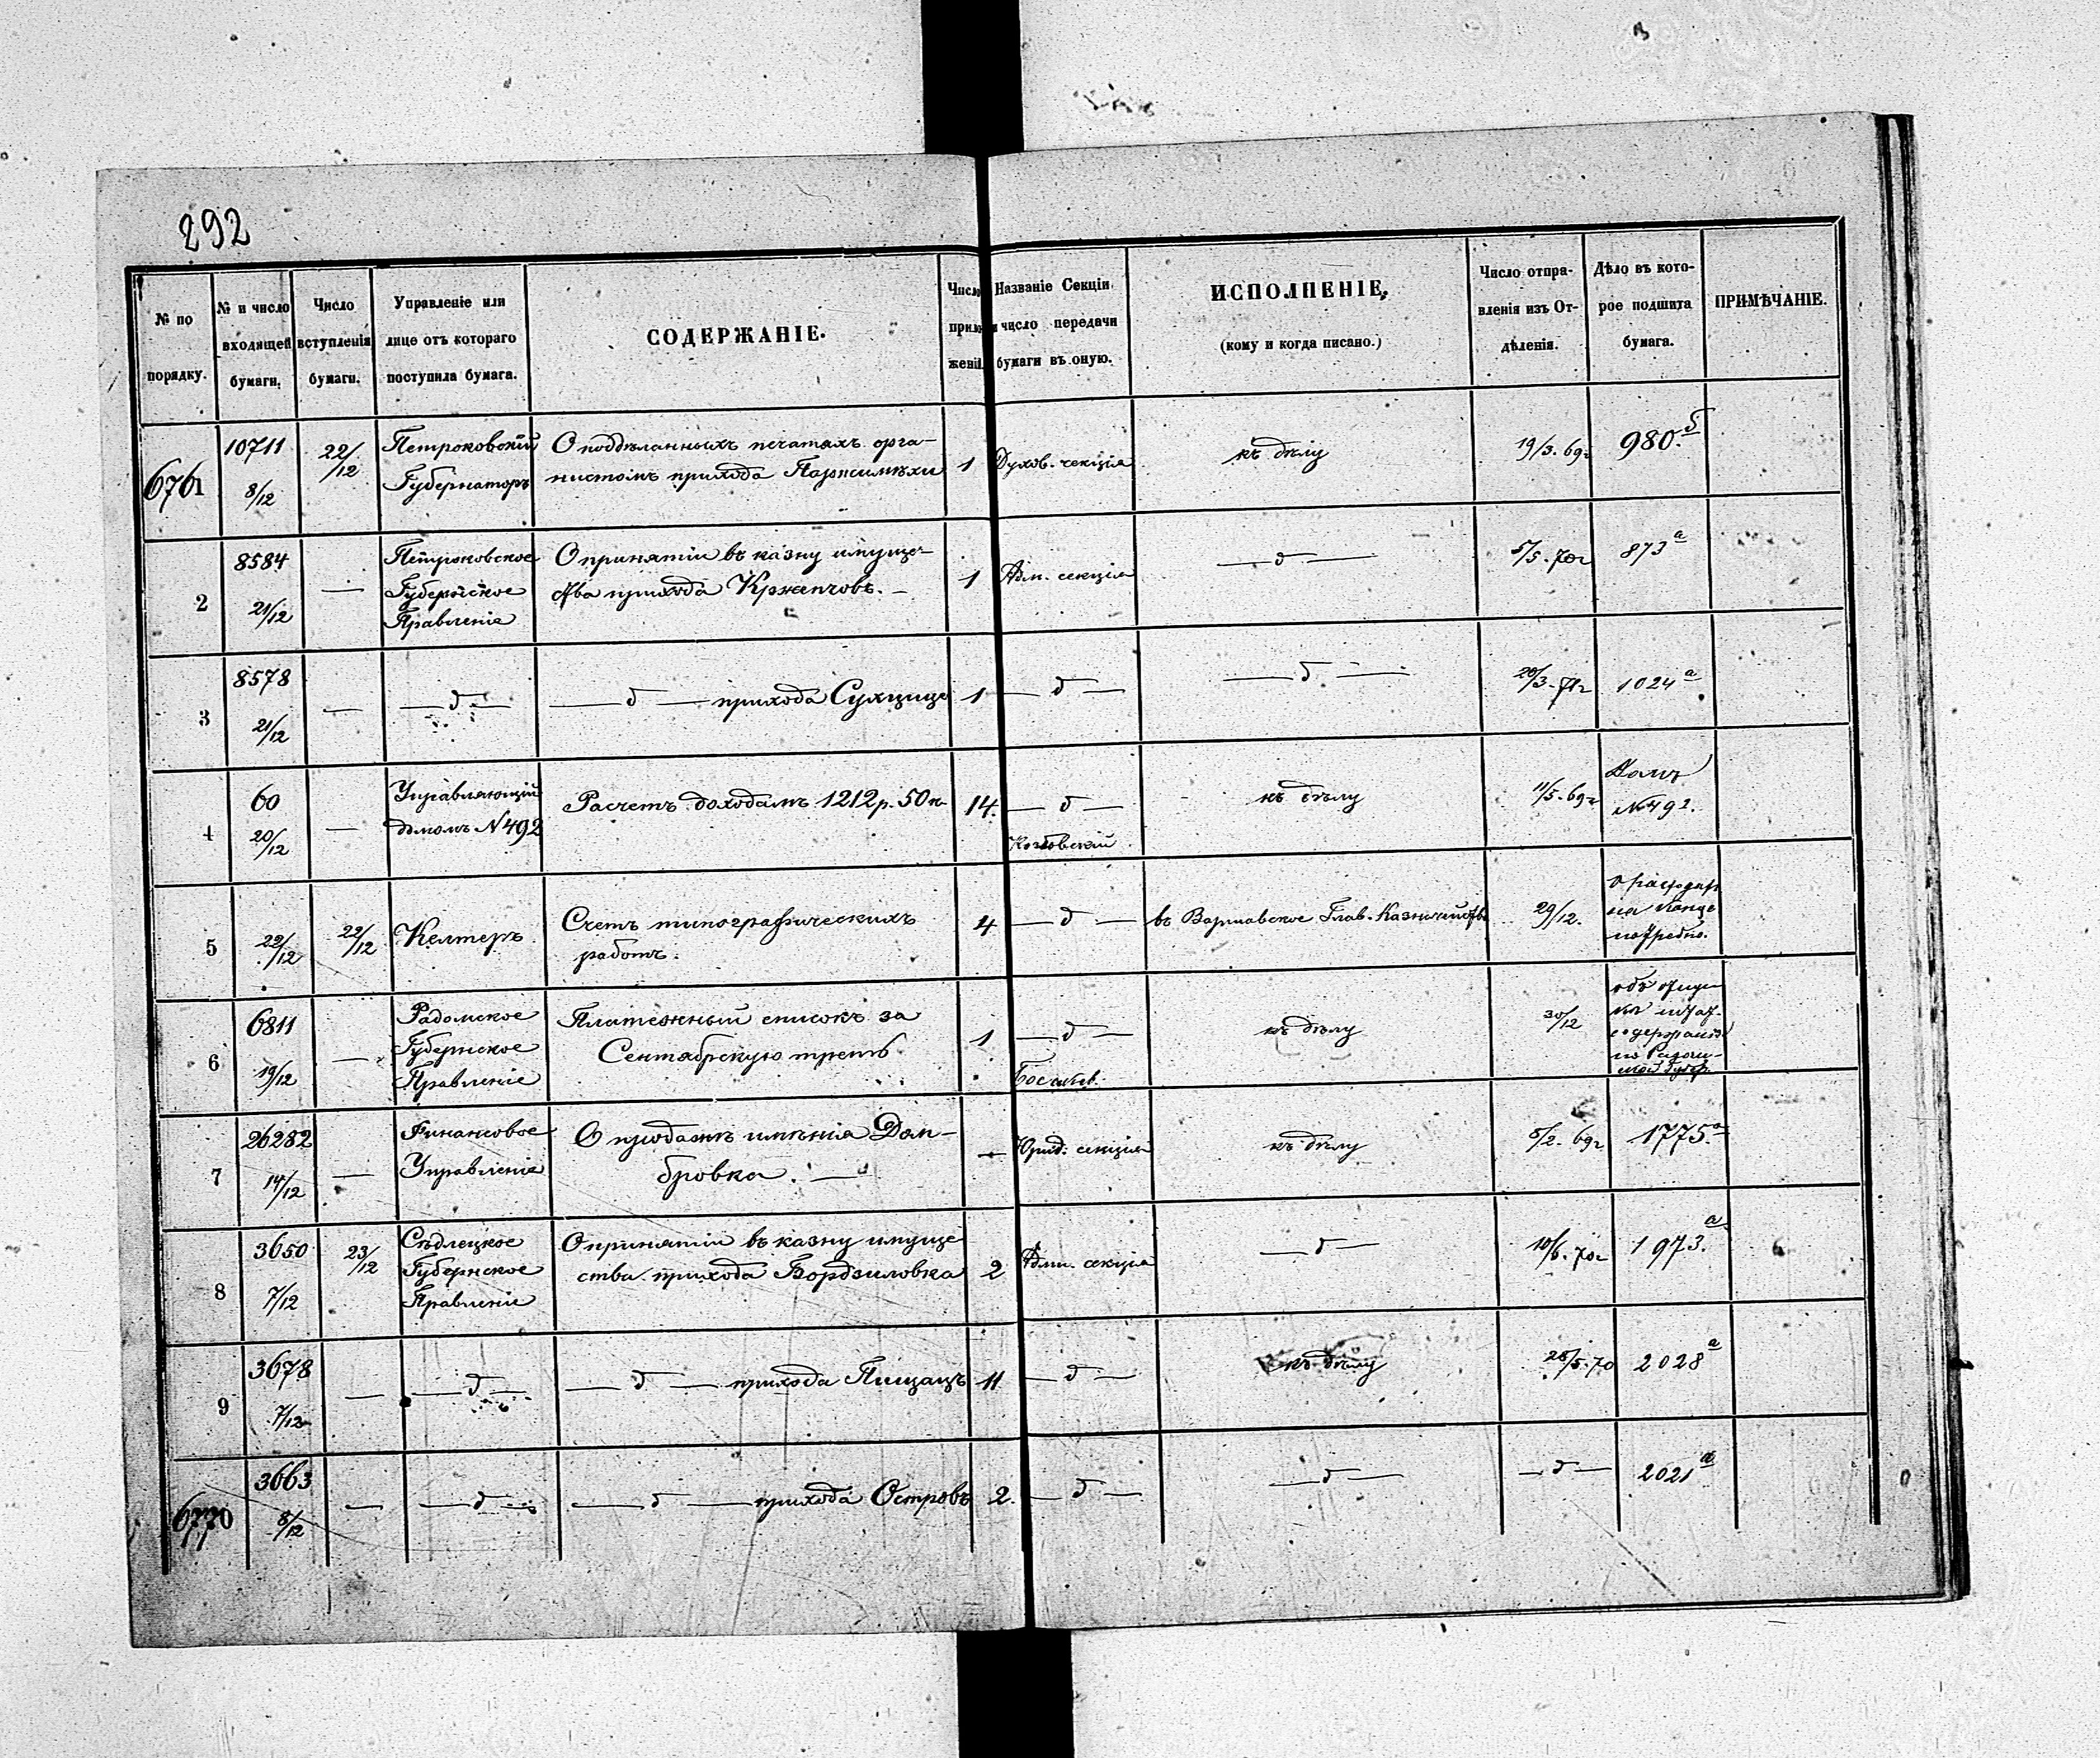 292
№ по порядку.
№ и число входящей бумаги.
Число вступленія бумаги.
Управленіе или лице отъ котораго поступила бумага.
СОДЕРЖАНІЕ.
Число прило женій.
Названіе Секціи и число передачи бумаги въ оную.
ИСПОЛНЕНІЕ.
(кому и когда писано.)
Число отпра- вленія изъ От- дѣленія.
Дѣло въ кото- рое подшита бумага.
ПРИМѢЧАНІЕ.
6761
10711
8/12
22/12
Петроковскій
Губернаторъ
О поддѣланныхъ печатяхъ орга-
нистомъ прихода
1
Духов. секція
къ дѣлу
19/3. 69 г
980. б
2
8584
21/12
—
Петроковское
Губернское
Правленіе
О принятіи въ казну имуще-
ства прихода Кржепчовъ. —
1
Адм. секція
— д —
5/5. 70 г
873 а
3
8578
21/12
—
— д —
— д — прихода Сулщице
1
— д —
— д —
20/3. 71 г
1024 а
4
60
20/12
—
Управляющій
домомъ № 492
Расчетъ доходамъ 1212 р. 50 к.
14.
— д —
Козловскій
къ дѣлу
11/5. 69 г
Домъ
№ 492.
5
22/12
22/12
Келтеръ
Счетъ типографическихъ
работъ.
4
— д —
въ Варшавское Глав. Казначейство
29/12.
о расходах
на канце
потребн.
6
6811
19/12
—
Радомское
Губернское
Правленіе
Платежный списокъ за
Сентябрскую треть
1
— д —
къ дѣлу
30/12
объ
содержанія
по Радом-
ской Губер.
7
26282
14/12
—
Финансовое
Управленіе
О продажѣ имѣнія Дом-
бровка. —
—
Юрид. секція
къ дѣлу
5/2. 69 г
1775. а
8
3650
7/12
23/12
Сѣдлецкое
Губернское
Правленіе
О принятіи въ казну имуще
ства прихода Бордзиловка
2
Адми. секція
— д —
10/6. 70 г
1973. а
9
3678
7/12
—
— д —
— д — прихода Пищацъ
11
— д —
къ дѣлу
25/5. 70
2028 а
6770
3663
8/12
—
— д —
— д — прихода Островъ
2.
— д —
— д —
— д —
2021 а